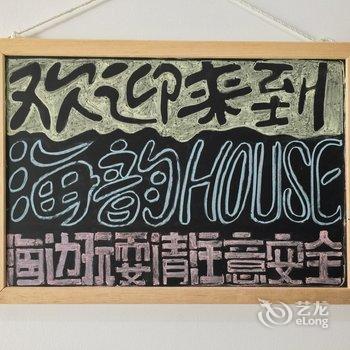 欢迎来到
海韵HOUSE
海边玩耍请注意安全
艺龙
eLong